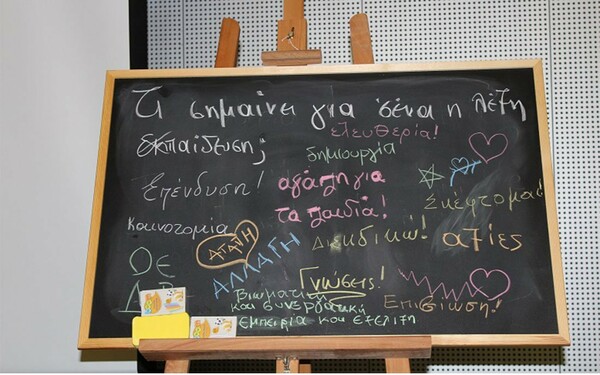 Τι σημαίνει για σένα η λέξη
εκπαίδευση;
ελευθερία!
δημιουργία
Επένδυση!
αγάπη για
τα παιδιά!
Σκέφτομαι!
Καινοτομία
ΑΓΑΠΗ
ΑΛΛΑΓΗ
Διεκδικώ!
αξίες
Γνώσεις!
Βιωματική
και συνεργατική
εμπειρία και εξέλιξη
Επιβίωση!